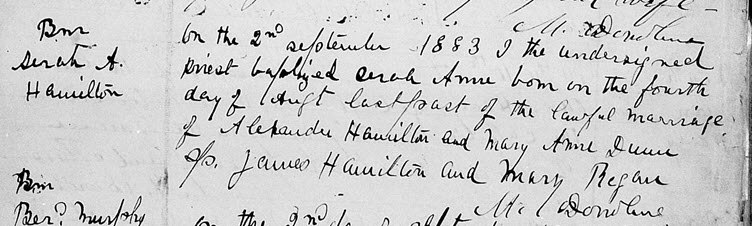 M. O'Donohue
Bm
Sarah A.
Hamilton
On the 2nd september 1883 I the undersigned
priest baptized Sarah Anne born on the fourth
day of Augt last past of the lawful marriage
of Alexander Hamilton and Mary Anne Dunn
s/s. James Hamilton and Mary Regan
M.
Bm
Berd. Murphy
On the 2nd day of Sept